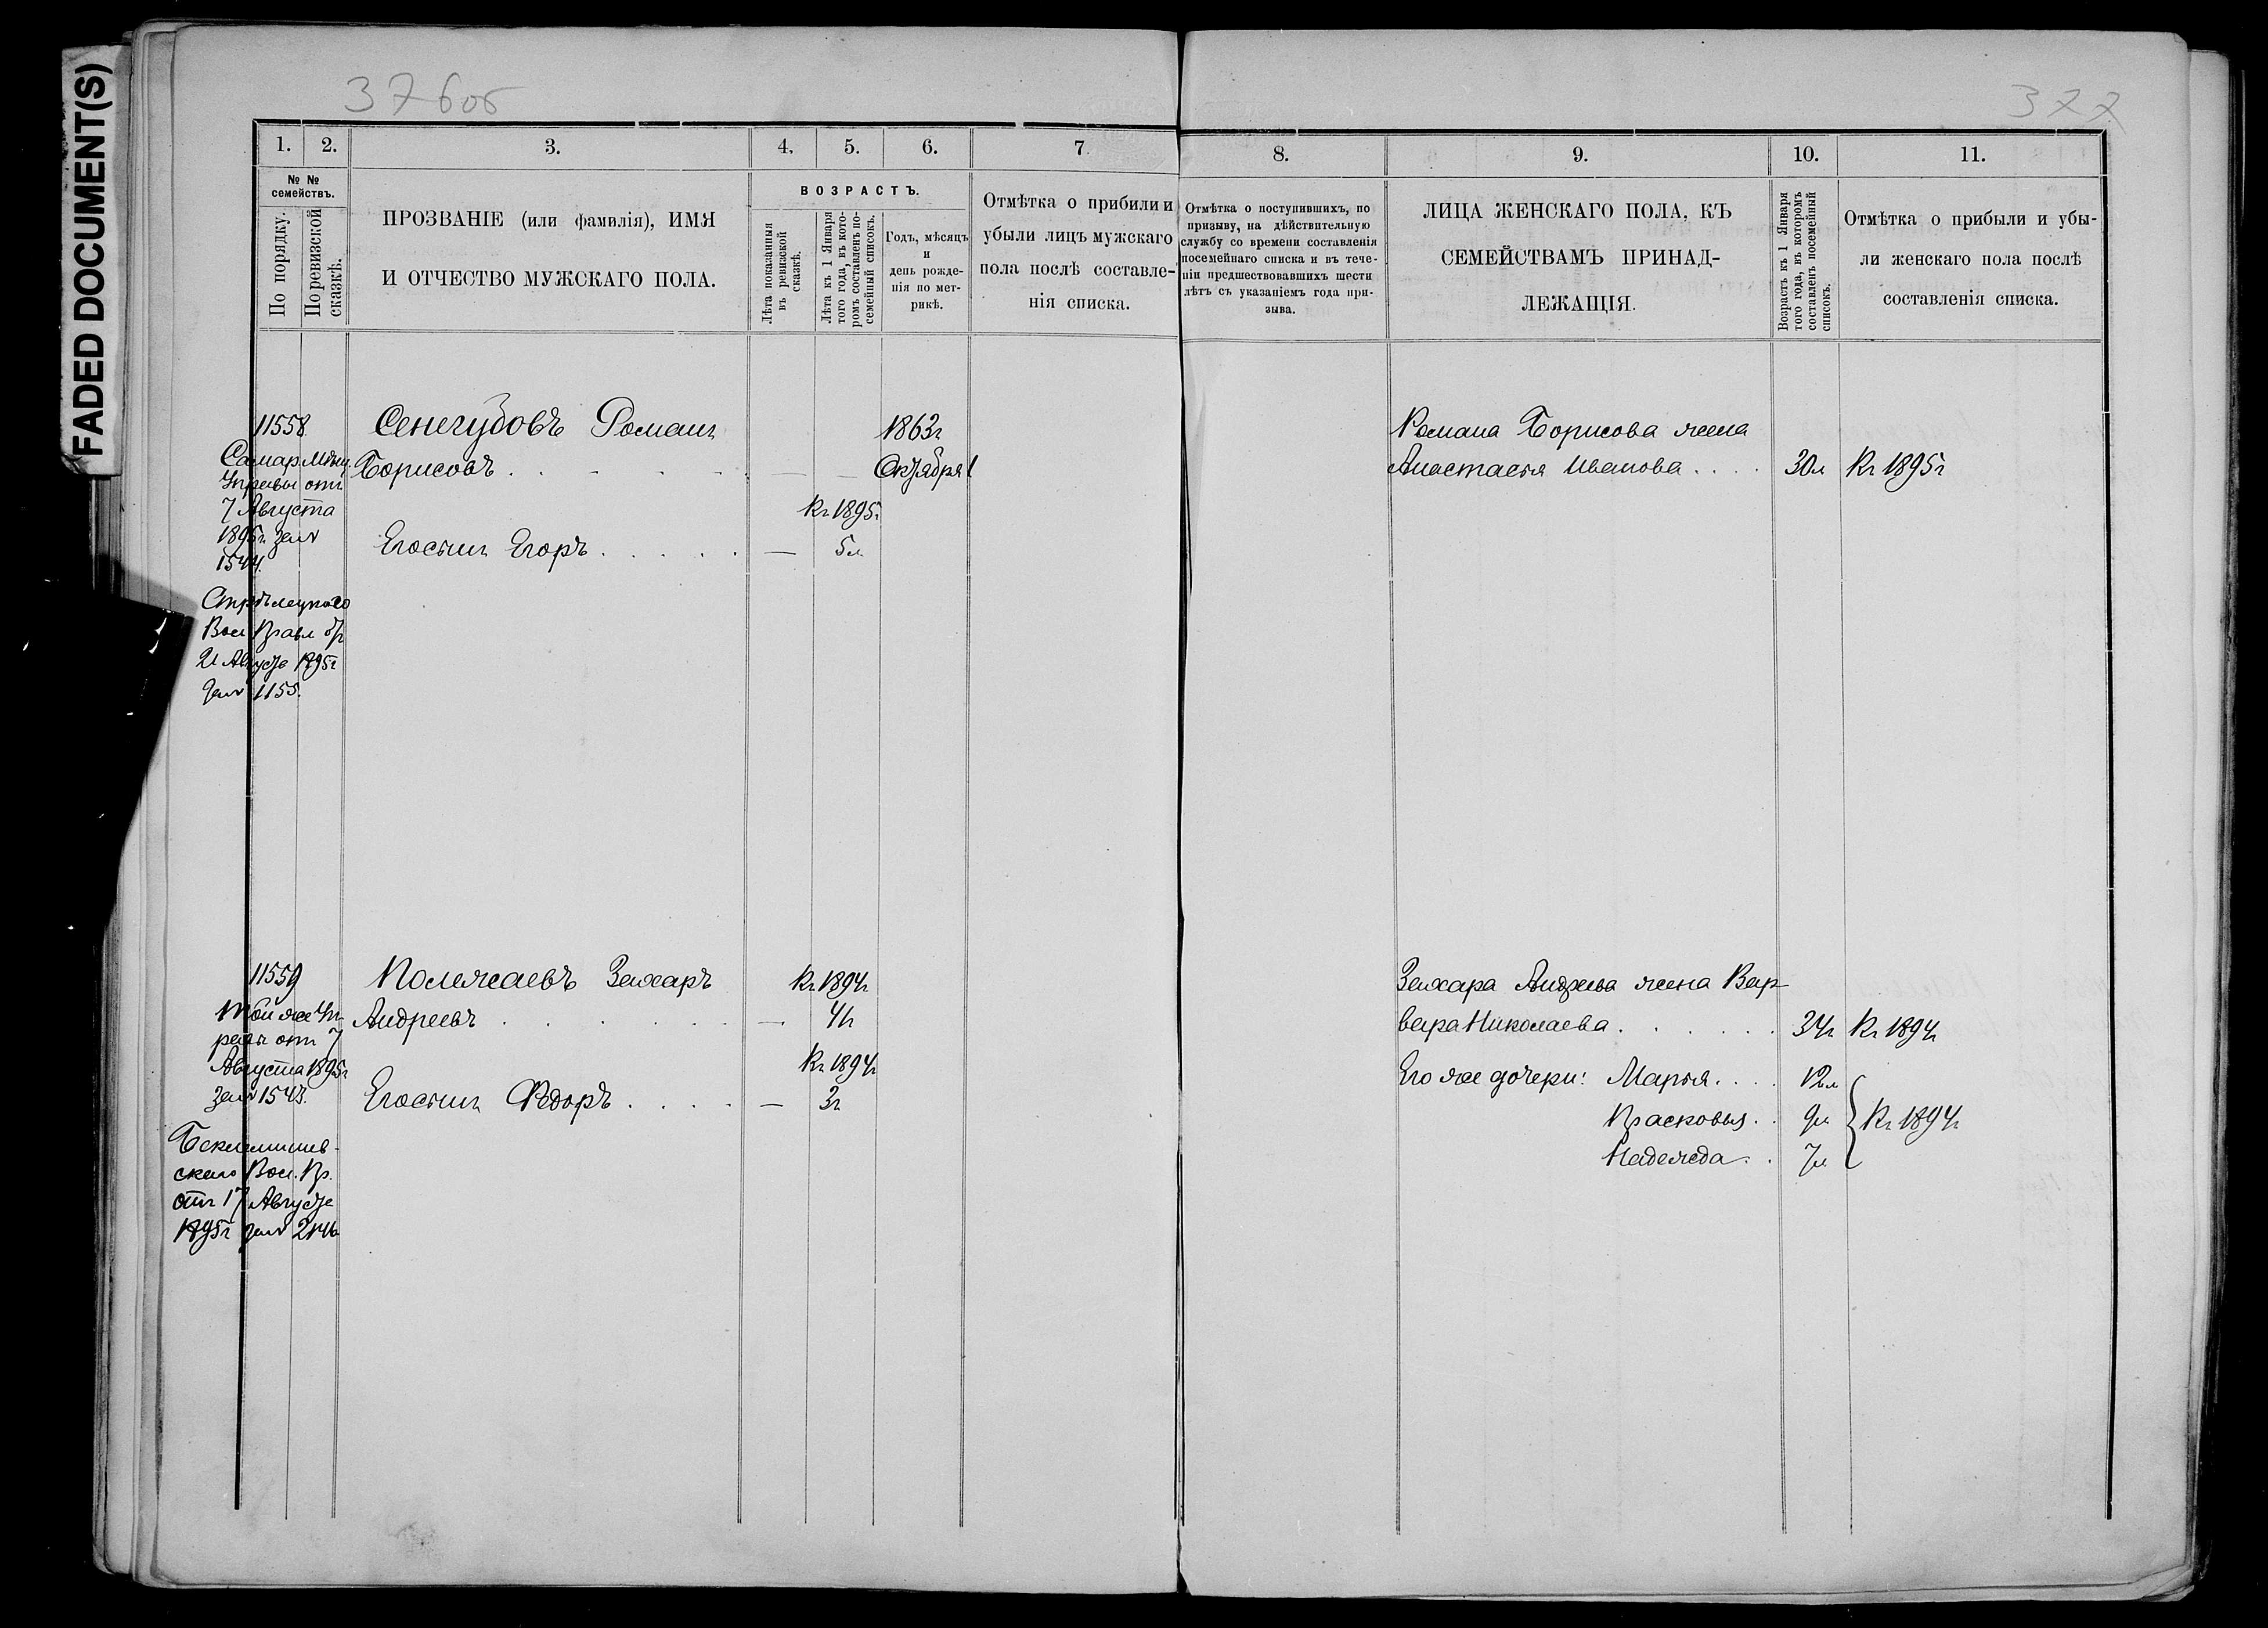 FADED DOCUMENT(S)
376об
377
1. 2. 3. 4. 5. 6. 7.
№ №
семействъ.
По порядку.
По ревизской
сказкѣ.
ПРОЗВАНІЕ (или фамилія), ИМЯ
И ОТЧЕСТВО МУЖСКАГО ПОЛА.
ВОЗРАСТЪ.
Лѣта показанныя
въ ревизской
сказкѣ.
Лѣта къ 1 Января
того года, въ кото-
ромъ составленъ по-
семейный списокъ.
Годъ, мѣсяцъ
и
день рожде-
нія по мет-
рикѣ.
Отмѣтка о прибили и
убыли лицъ мужскаго
пола послѣ составле-
нія списка.
8. 9. 10. 11.
Отмѣтка о поступившихъ, по
призыву, на дѣйствительную
службу со времени составленія
посемейнаго списка и въ тече-
ніи предшествовавшихъ шести
лѣтъ съ указаніемъ года при-
зыва.
ЛИЦА ЖЕНСКАГО ПОЛА, КЪ
СЕМЕЙСТВАМЪ ПРИНАД-
ЛЕЖАЩІЯ.
Возрастъ къ 1 Января
того года, въ которомъ
составленъ посемейный
списокъ.
Отмѣтка о прибыли и убы-
ли женскаго пола послѣ
составленія списка.
11558
Самар. Мѣщ.
Управы отъ
7 Августа
1895г. за №
1544.
Стрѣлецкаго
Вол Правл от
21 Августа 1895г
за № 1155.
Сенегубовъ Романъ
Борисовъ . . . . . — —
1863г
Октября 1
Къ 1895г
Его сынъ Егоръ . . . . . — 5л
Романа Борисова жена
Анастасья Иванова . . . . 30л Къ 1895г
11559
Той же Уп-
равы отъ 7
Августа 1895г
за № 1543.
Беклемишев-
скаго Вол. Пр.
отъ 17 Августа
1895г за № 2146
Полежаевъ Захаръ
Къ 1894г
Андреевъ . . . . . . — 41
Къ 1894г
Его сынъ Ѳедоръ . . . . — 3г
Захара Андреева жена Вар
вара Николаева . . . . . . 34г Къ 1894г
Его же дочери: Марья . . . . 12л
Прасковья . . 9л Къ 1894г
Надежда . . 7л